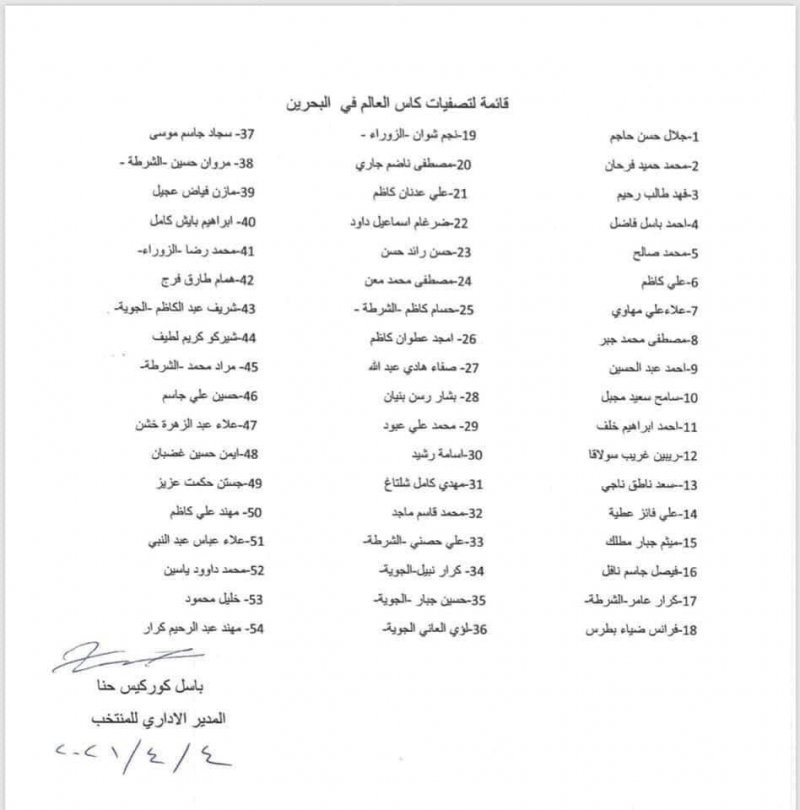 قائمة لتصفيات كاس العالم في البحرين
1-جلال حسن حاجم
2-محمد حميد فرحان
3-فهد طالب رحيم
4-احمد باسل فاضل
5-محمد صالح
6-علي كاظم
7-علاءعلي مهاوي
8-مصطفى محمد جبر
9-احمد عبد الحسين
10-سامح سعيد مجبل
11-احمد ابراهيم خلف
12-ريبين غريب سولاقا
13--سعد ناطق ناجي
14-علي فائز عطية
15-ميثم جبار مطلك
16-فيصل جاسم نافل
17-كرار عامر-الشرطة-
18-فرانس ضياء بطرس
19-نجم شوان -الزوراء -
20-مصطفى ناضم جاري
21-علي عدنان كاظم
22-ضرغام اسماعيل داود
23-حسن رائد حسن
24-مصطفى محمد معن
25-حسام كاظم -الشرطة -
26- امجد عطوان كاظم
27- صفاء هادي عبد الله
28- بشار رسن بنيان
29- محمد علي عبود
30-اسامة رشيد
31-مهدي كامل شلتاغ
32-محمد قاسم ماجد
33-علي حصني -الشرطة-
34- كرار نبيل-الجوية-
35-حسين جبار -الجوية-
36-لؤي العاني الجوية-
37- سجاد جاسم موسى
38- مروان حسين -الشرطة -
39-مازن فياض عجيل
40- ابراهيم بايش كامل
41-محمد رضا -الزوراء-
42-همام طارق فرج
43-شريف عبد الكاظم -الجوية-
44-شيركو كريم لطيف
45- مراد محمد -الشرطة-
46-حسين علي جاسم
47-علاء عبد الزهرة خشن
48-ايمن حسين غضبان
49-جستن حكمت عزيز
50- مهند علي كاظم
51-علاء عباس عبد النبي
52-محمد داوود ياسين
53- خليل محمود
54- مهند عبد الرحيم كرار
باسل كوركيس حنا
المدير الاداري للمنتخب
٢٠٢١/٤/٤